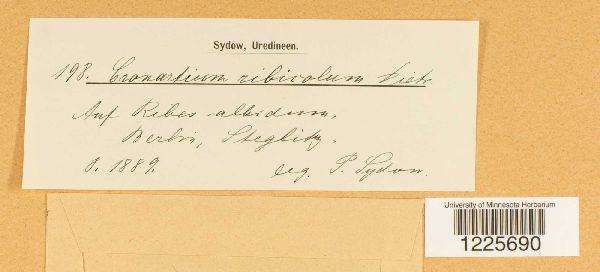 Sydow, Uredineen.
198. Cronartium ribicolum Dietr.
Auf Ribes albidum,
Berlin, Steglitz.
8. 1889. leg. P. Sydow.
University of Minnesota Herbarium
1225690